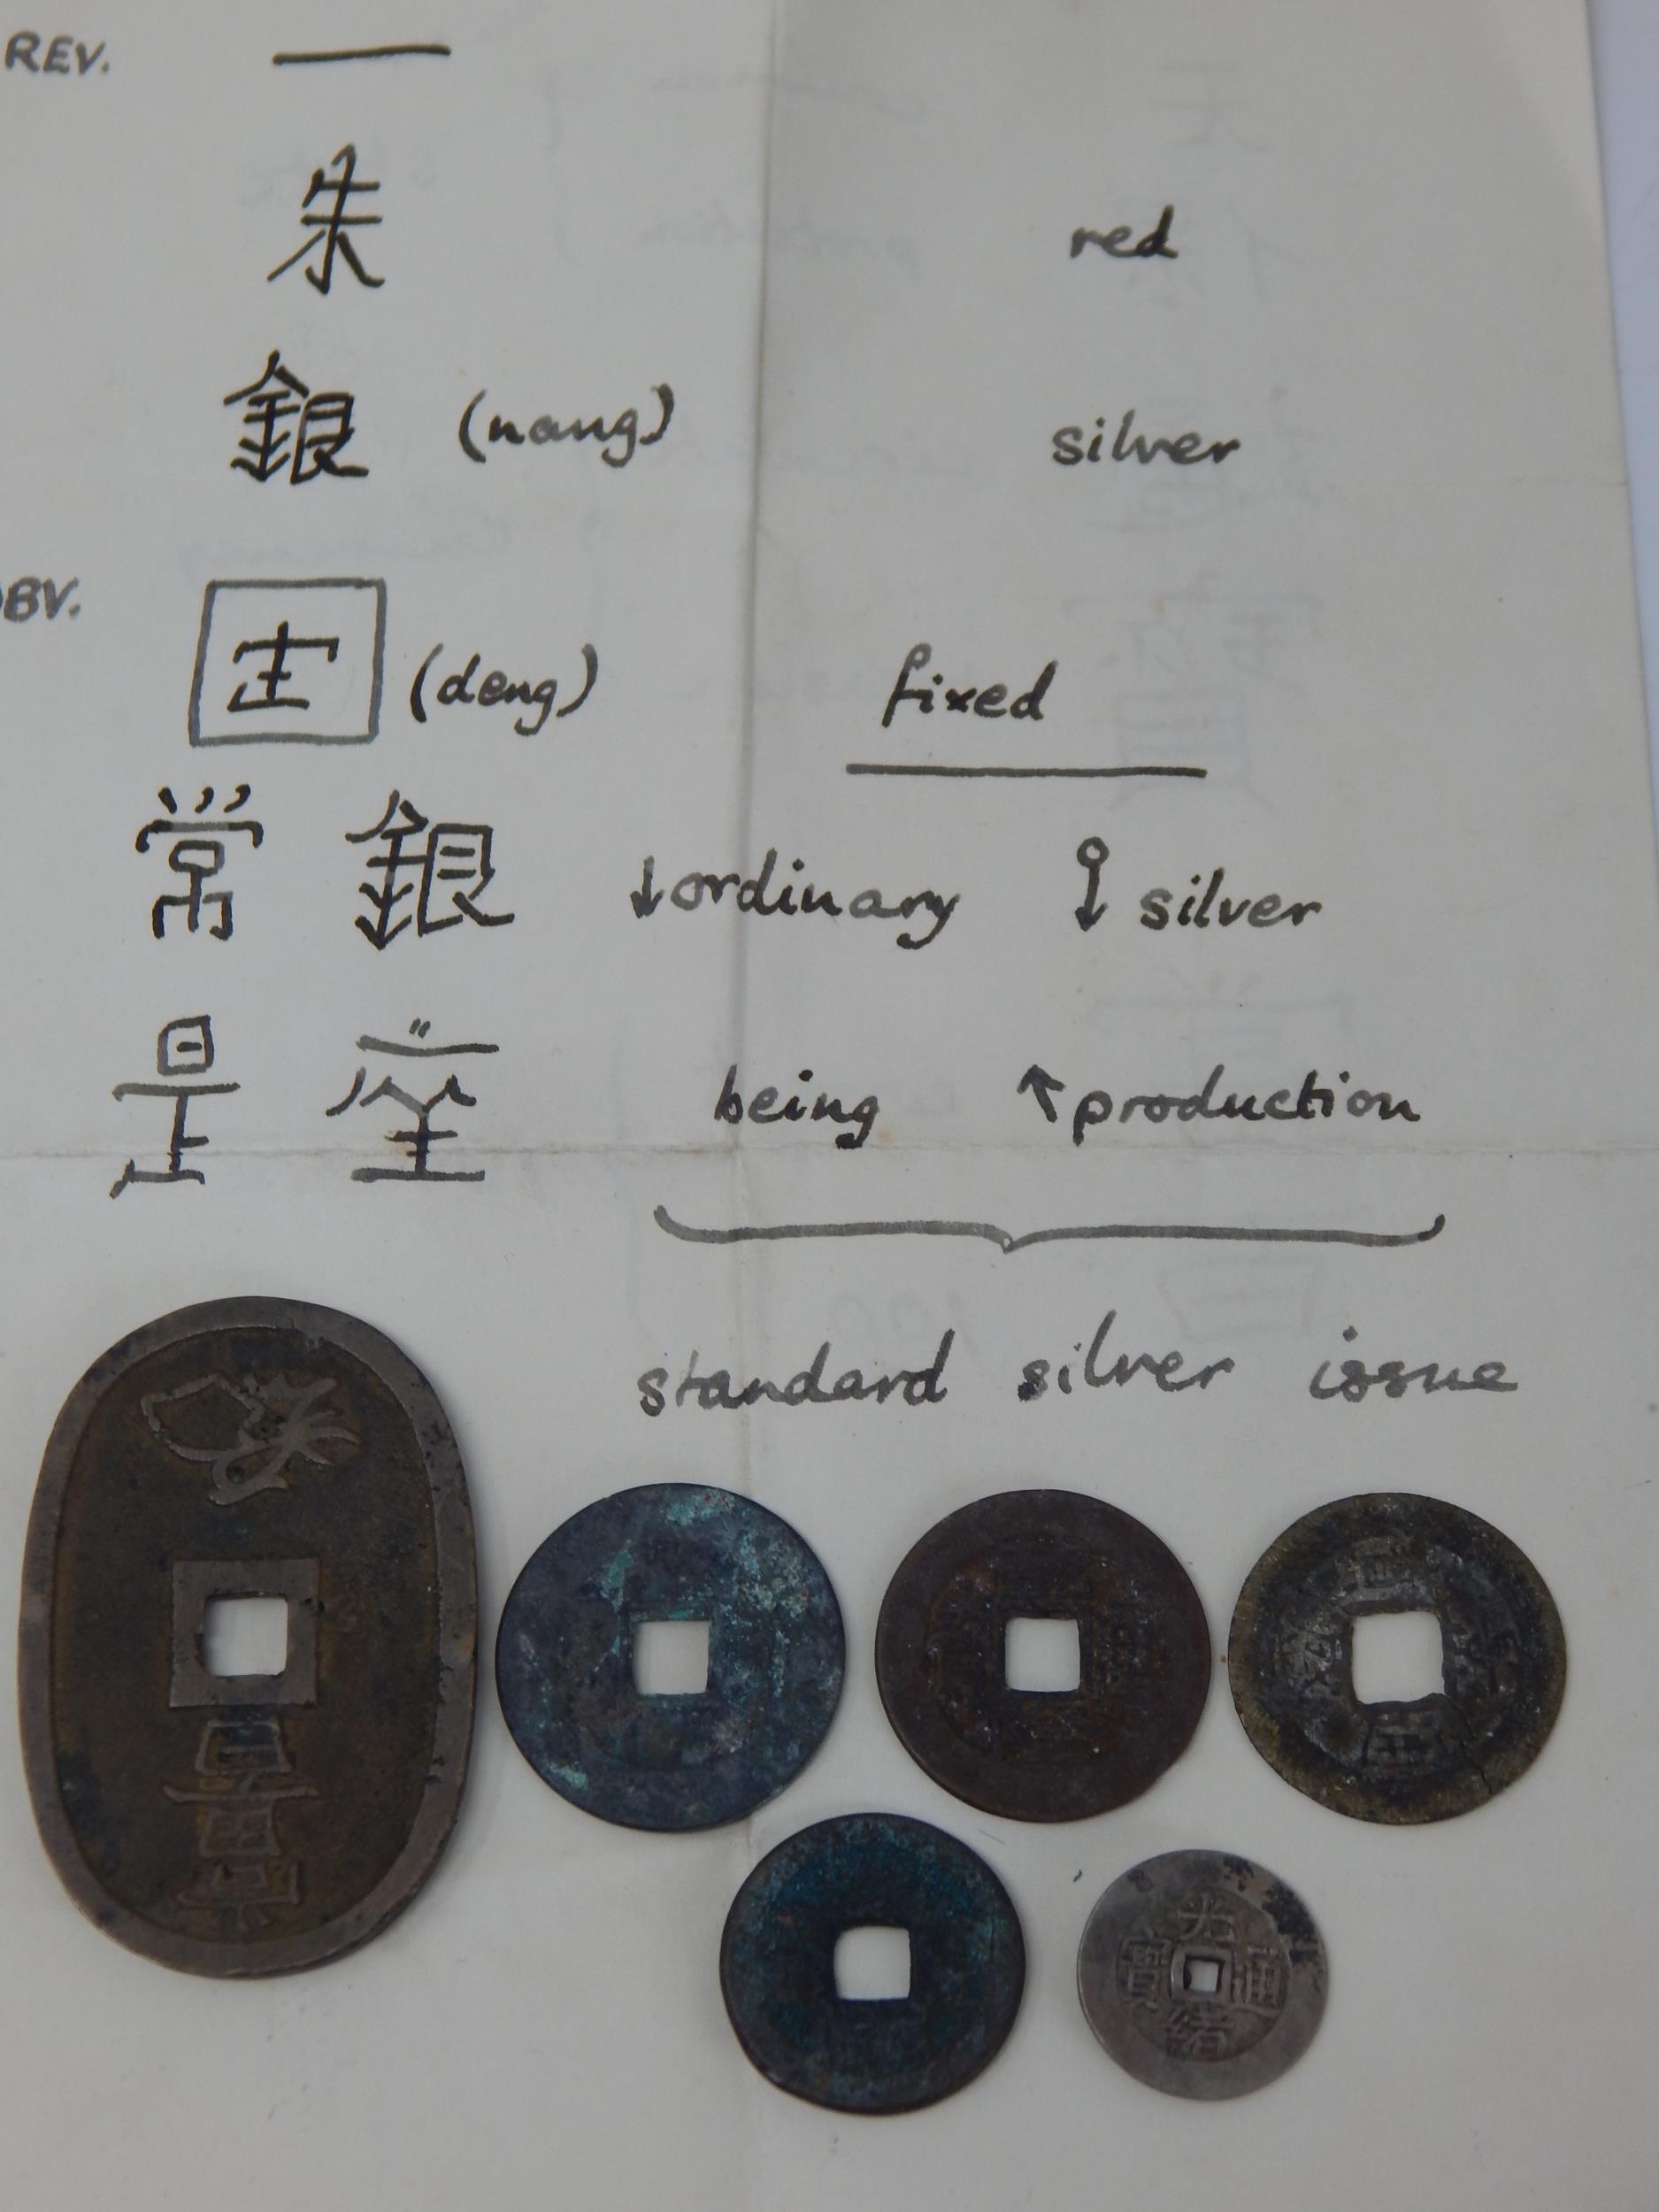 REV. 一
朱 red
銀 (nang) silver
OBV. 定 (deng) fixed
常 銀 ↓ordinary ↓silver
是 座 being ↑production
standard silver issue
當百
光緒通寶